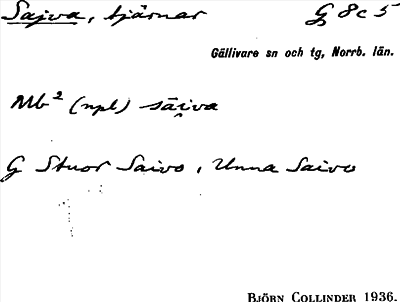 Sajva, tjärnar G 8 c 5
Gällivare sn och tg, Norrb. län.
Mb² (npl) sāi̯va
G Stuor Saivo, Unna Saivo
BJÖRN COLLINDER 1936.